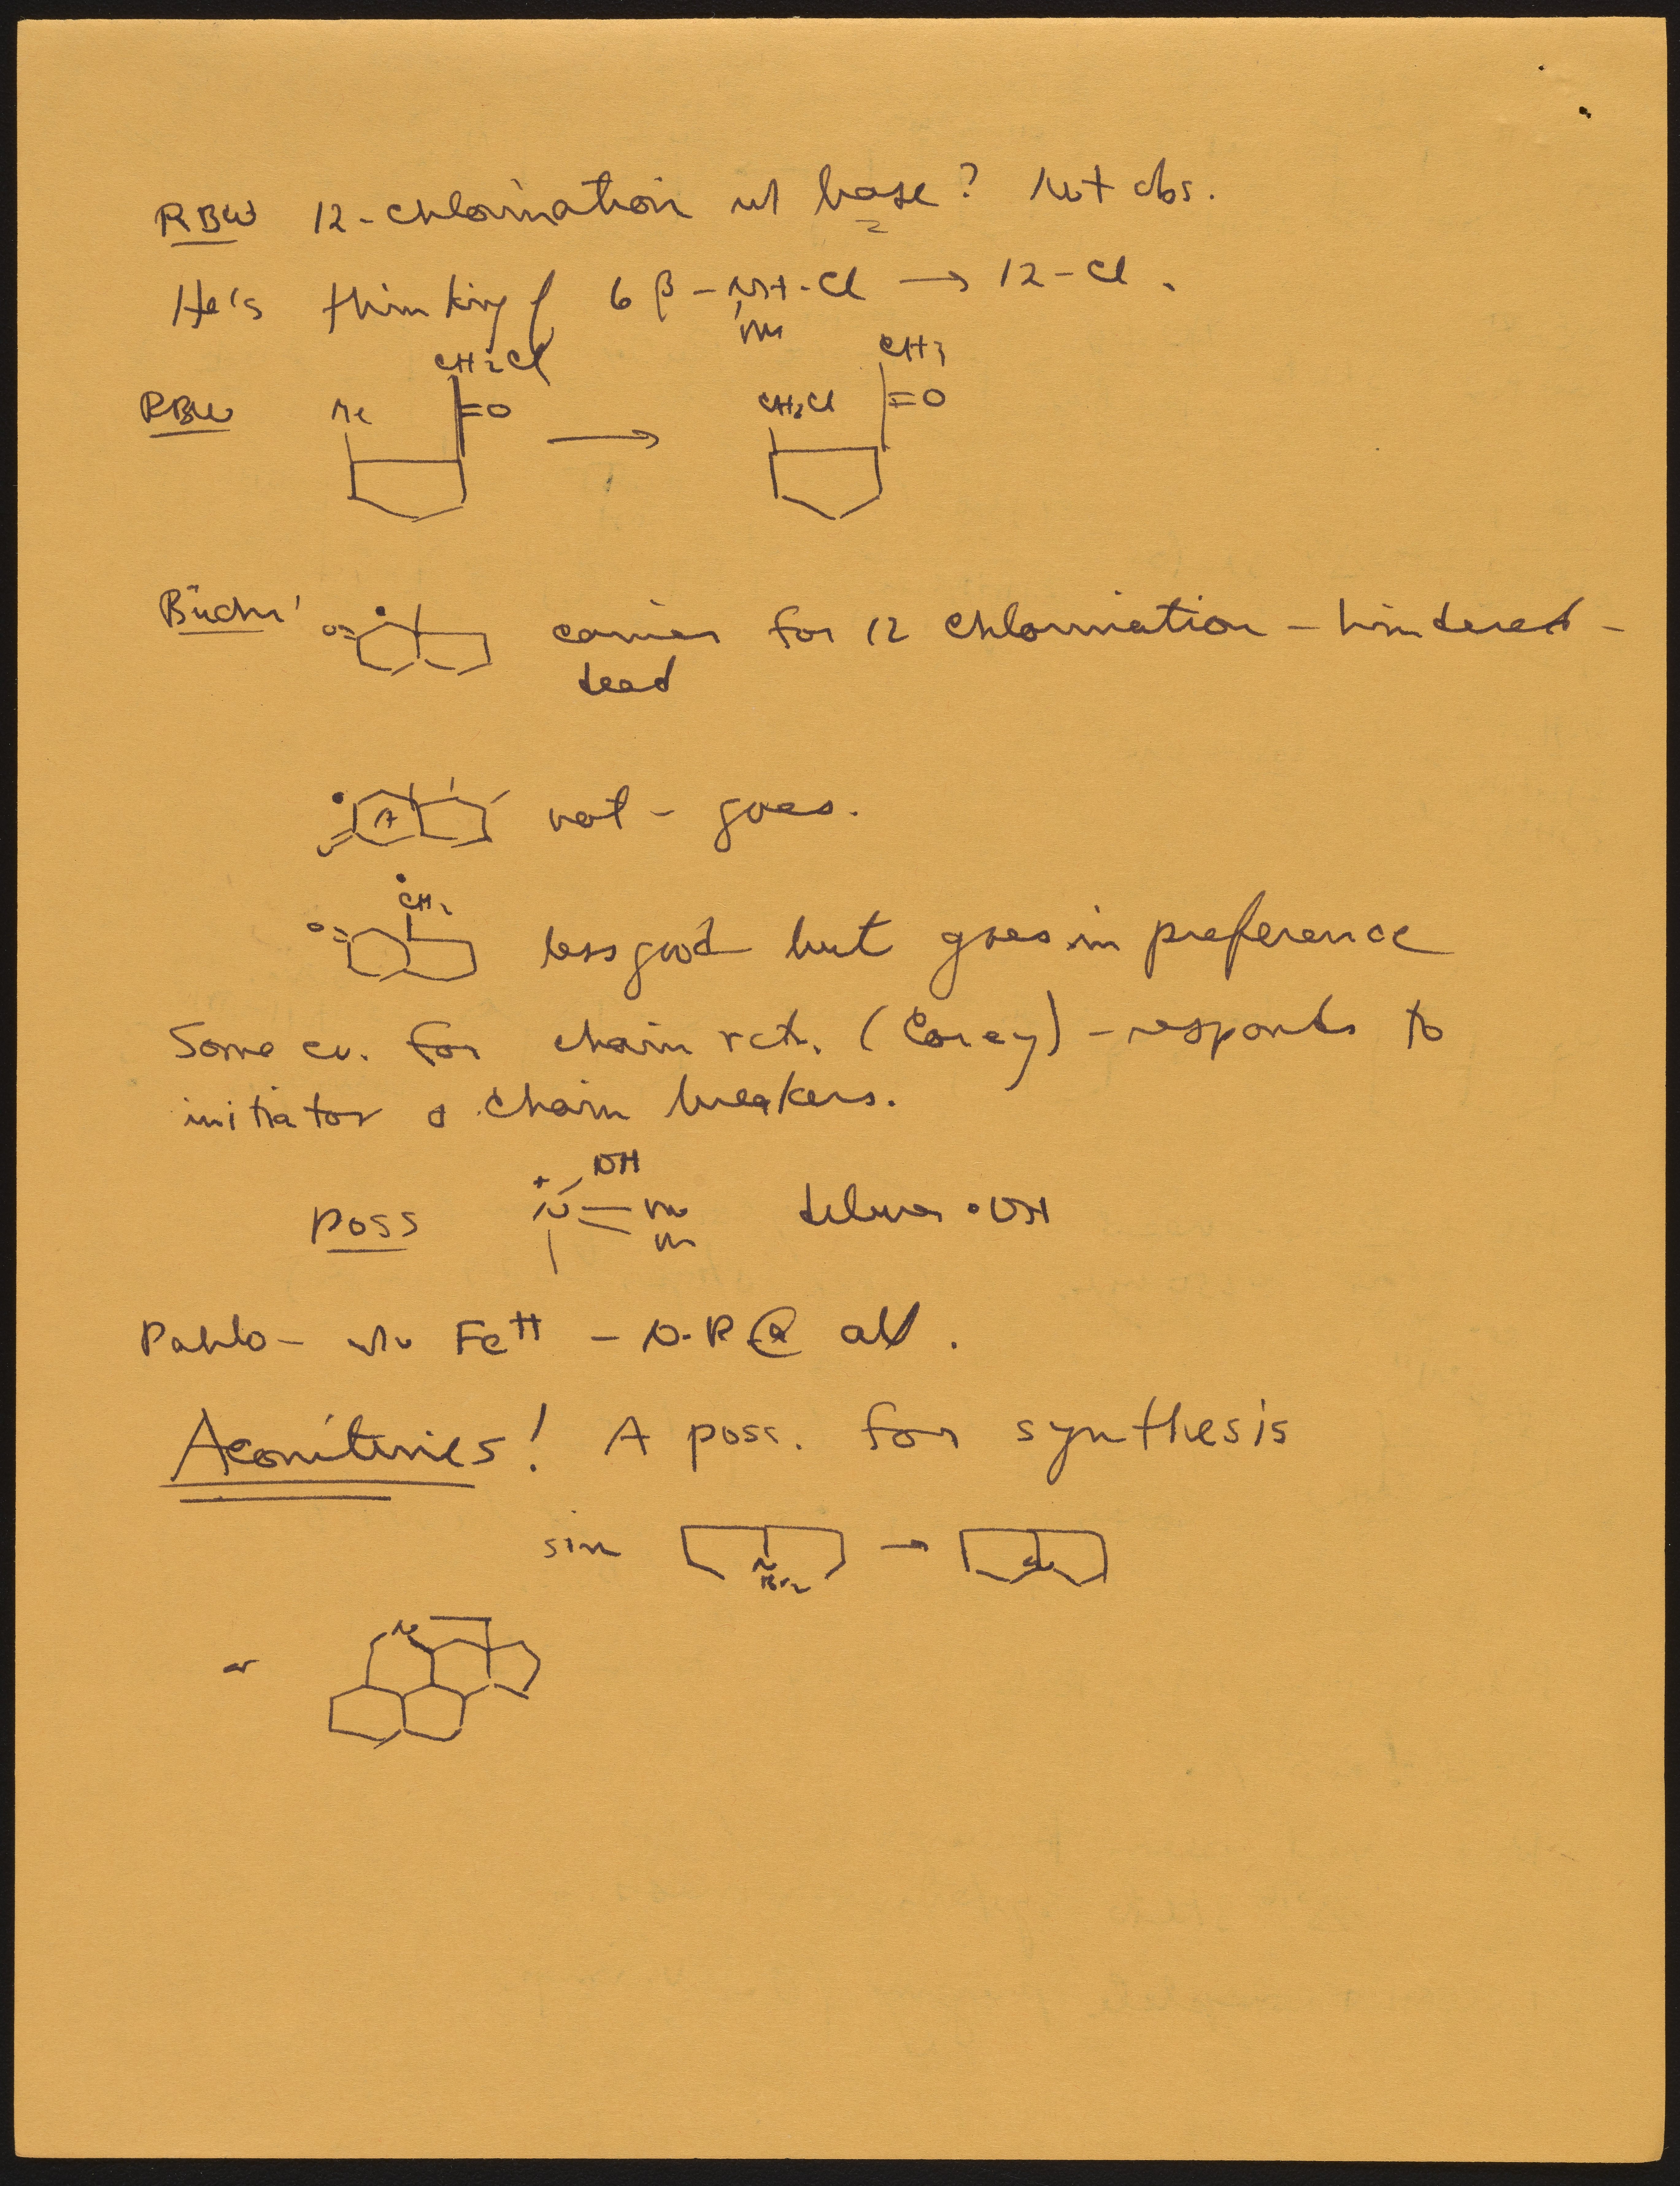 RBW 12-chlorination w/ base? Not obs.
He's thinking of 6β-NH-Cl → 12-Cl.
CH2Cl CH3
RBW Me =O → CH2Cl =O
Büchi O= carrier for 12 chlorination - hindered -
dead
A not - goes.
CH2
O= less good but goes in preference
Some ev. for chain rct. (Corey) - responds to
initiator & chain breakers.
+ OH
poss N •OH
Pablo - via Fe++ - O.K.
Aconitines! A poss. for synthesis
sim N →
Br2
or N